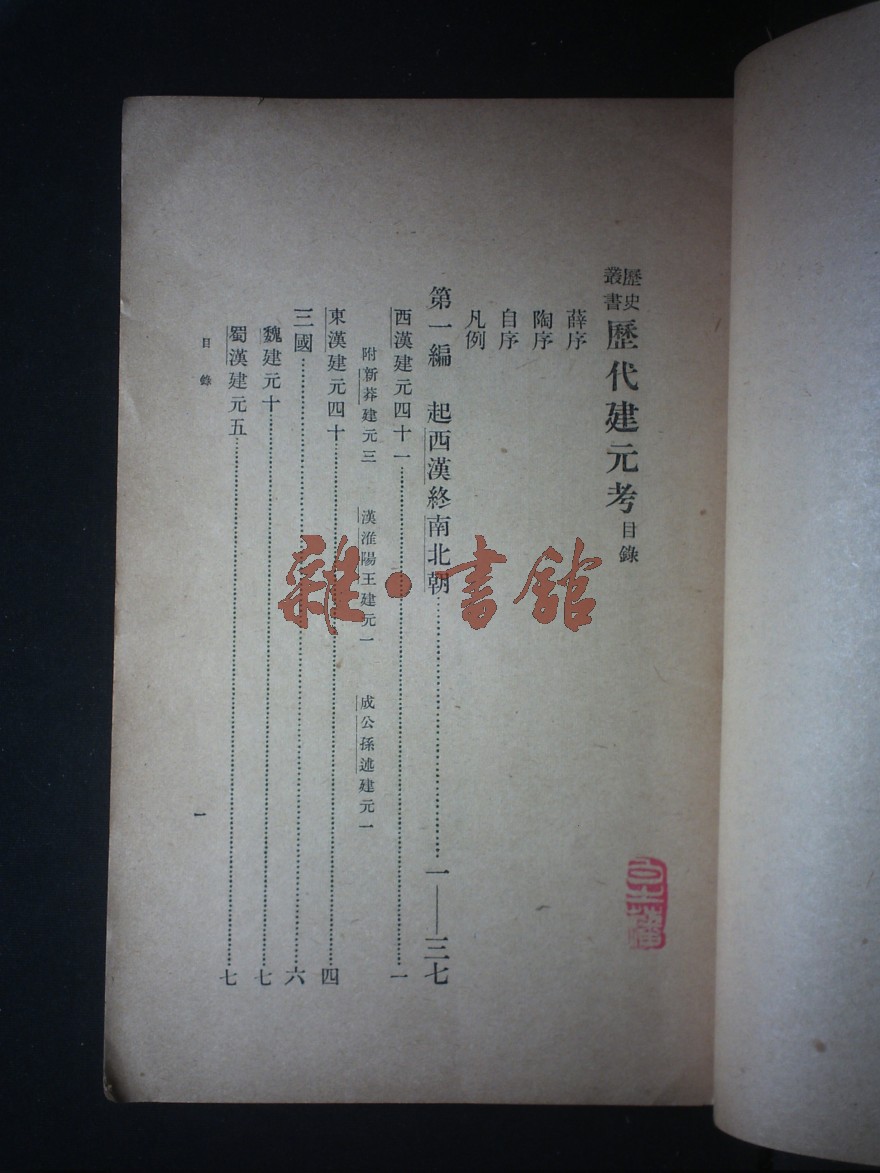 歷史叢書 歷代建元考目錄
薛序
陶序
自序
凡例
第一編 起西漢終南北朝……一——三七
西漢建元四十一……一
附新莽建元三 漢淮陽王建元一 成公孫述建元一
東漢建元四十……四
三國……六
魏建元十……七
蜀漢建元五……七
目錄 一
雜·書館